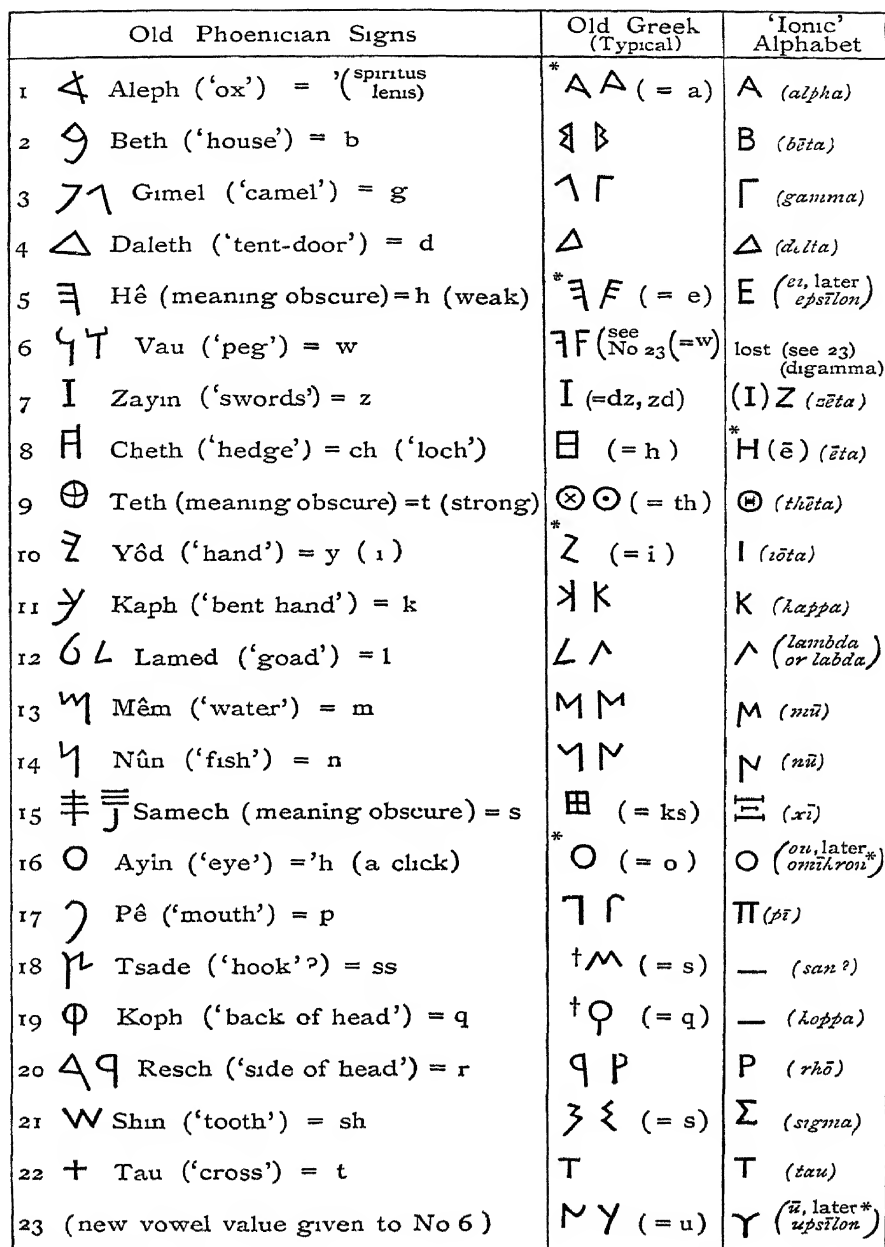 Old Phoenician Signs | Old Greek (Typical) | 'Ionic' Alphabet
1 𐤀 Aleph ('ox') = '(spiritus lenis) | * A A ( = a) | A (alpha)
2 𐤁 Beth ('house') = b | B B | B (bēta)
3 𐤂 Gimel ('camel') = g | 1 Γ | Γ (gamma)
4 Δ Daleth ('tent-door') = d | Δ | Δ (delta)
5 𐤄 Hê (meaning obscure) = h (weak) | * E E ( = e) | E (ει, later epsīlon)
6 𐤅 Vau ('peg') = w | F F (see No 23 (=w) | lost (see 23) (digamma)
7 I Zayin ('swords') = z | I (=dz, zd) | (I) Z (zēta)
8 𐤇 Cheth ('hedge') = ch ('loch') | 日 (= h ) | * H (ē) (ēta)
9 ⊕ Teth (meaning obscure) =t (strong) | ⊗ ⊙ ( = th) | Θ (thēta)
10 𐤉 Yôd ('hand') = y ( i ) | * Z (= i ) | I (iōta)
11 𐤊 Kaph ('bent hand') = k | K K | K (kappa)
12 6 L Lamed ('goad') = l | L Λ | Λ (lambda or labda)
13 𐤌 Mêm ('water') = m | M M | M (mū)
14 𐤍 Nûn ('fish') = n | N N | N (nū)
15 𐤎 Samech (meaning obscure) = s | ⊞ ( = ks) | Ξ (xī)
16 O Ayin ('eye') ='h (a click) | * O ( = o ) | O (ou, later* omīkron)
17 𐤐 Pê ('mouth') = p | ٦ Γ | Π (pī)
18 𐤑 Tsade ('hook' ?) = ss | † M ( = s) | — (san ?)
19 φ Koph ('back of head') = q | † Ϙ ( = q) | — (koppa)
20 𐤓 Resch ('side of head') = r | q P | P (rhō)
21 W Shin ('tooth') = sh | ⟨ Σ ( = s) | Σ (sigma)
22 + Tau ('cross') = t | T | T (tau)
23 (new vowel value given to No 6 ) | Y Y ( = u) | Υ (ū, later* upsīlon)